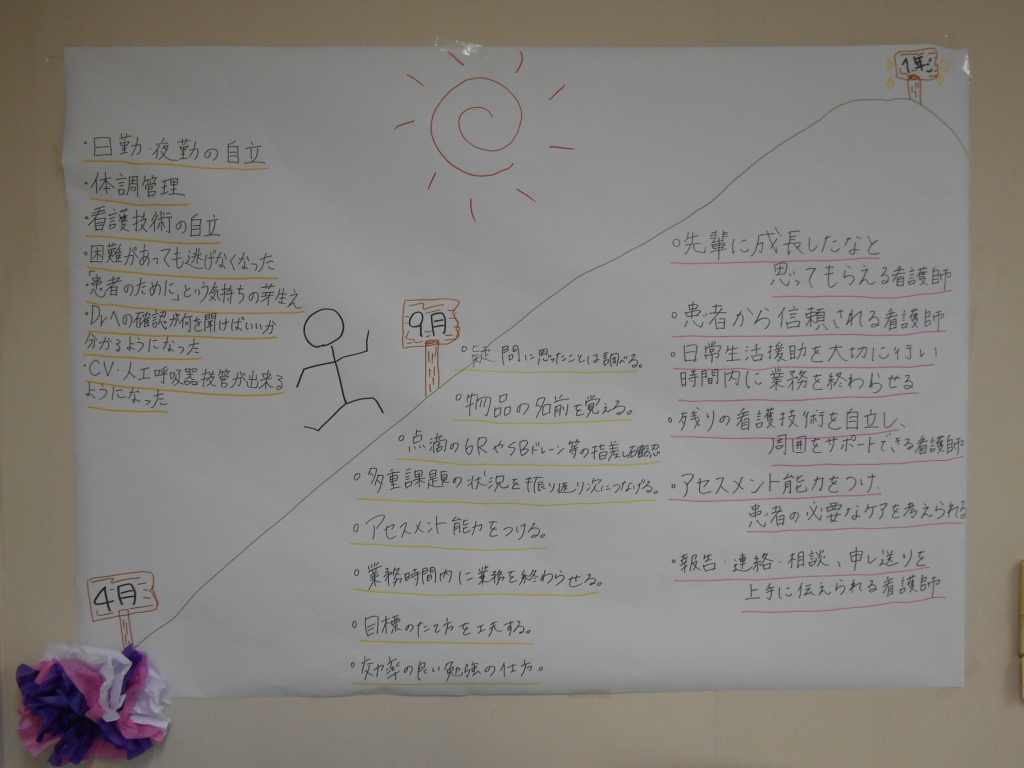 ・日勤・夜勤の自立
・体調管理
・看護技術の自立
・困難があっても逃げなくなった
・「患者のために」という気持ちの芽生え
・Drへの確認が何を聞けばいいか
分かるようになった
・CV・人工呼吸器・挿管が出来る
ようになった
4月
9月
1年ご
○疑問に思ったことは調べる。
○物品の名前を覚える。
○点滴の6RやSBドレーン等の指差し確認
○多重課題の状況を振り返り次につなげる。
○アセスメント能力をつける。
○業務時間内に業務を終わらせる。
○目標のたて方を工夫する。
○効率の良い勉強の仕方。
○先輩に成長したなと
思ってもらえる看護師
○患者から信頼される看護師
○日常生活援助を大切に行い
時間内に業務を終わらせる
○残りの看護技術を自立し、
周囲をサポートできる看護師
○アセスメント能力をつけ、
患者の必要なケアを考えられる
○報告・連絡・相談、申し送りを
上手に伝えられる看護師